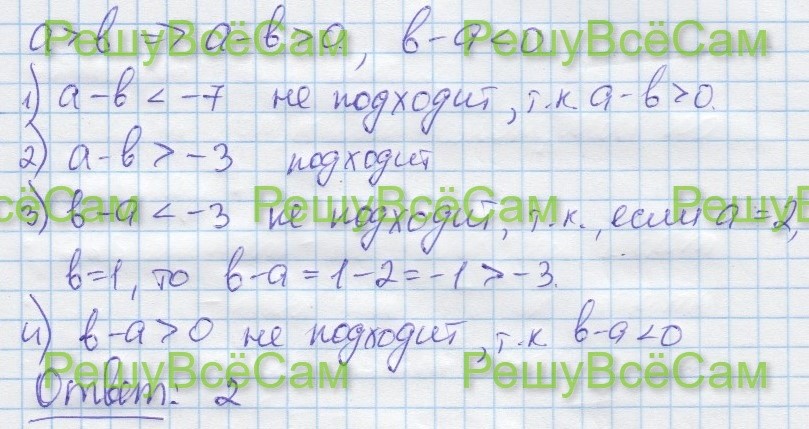 а>в => а-в>0, в-а<0
1) а-в < -7 не подходит, т.к. а-в>0.
2) а-в > -3 подходит
3) в-а < -3 не подходит, т.к., если а=2,
в=1, то в-а = 1-2 = -1 > -3.
4) в-а > 0 не подходит, т.к в-а<0
Ответ: 2
РешуВсёСам РешуВсёСам
сёСам РешуВсёСам РешуВ
РешуВсёСам РешуВсёСам